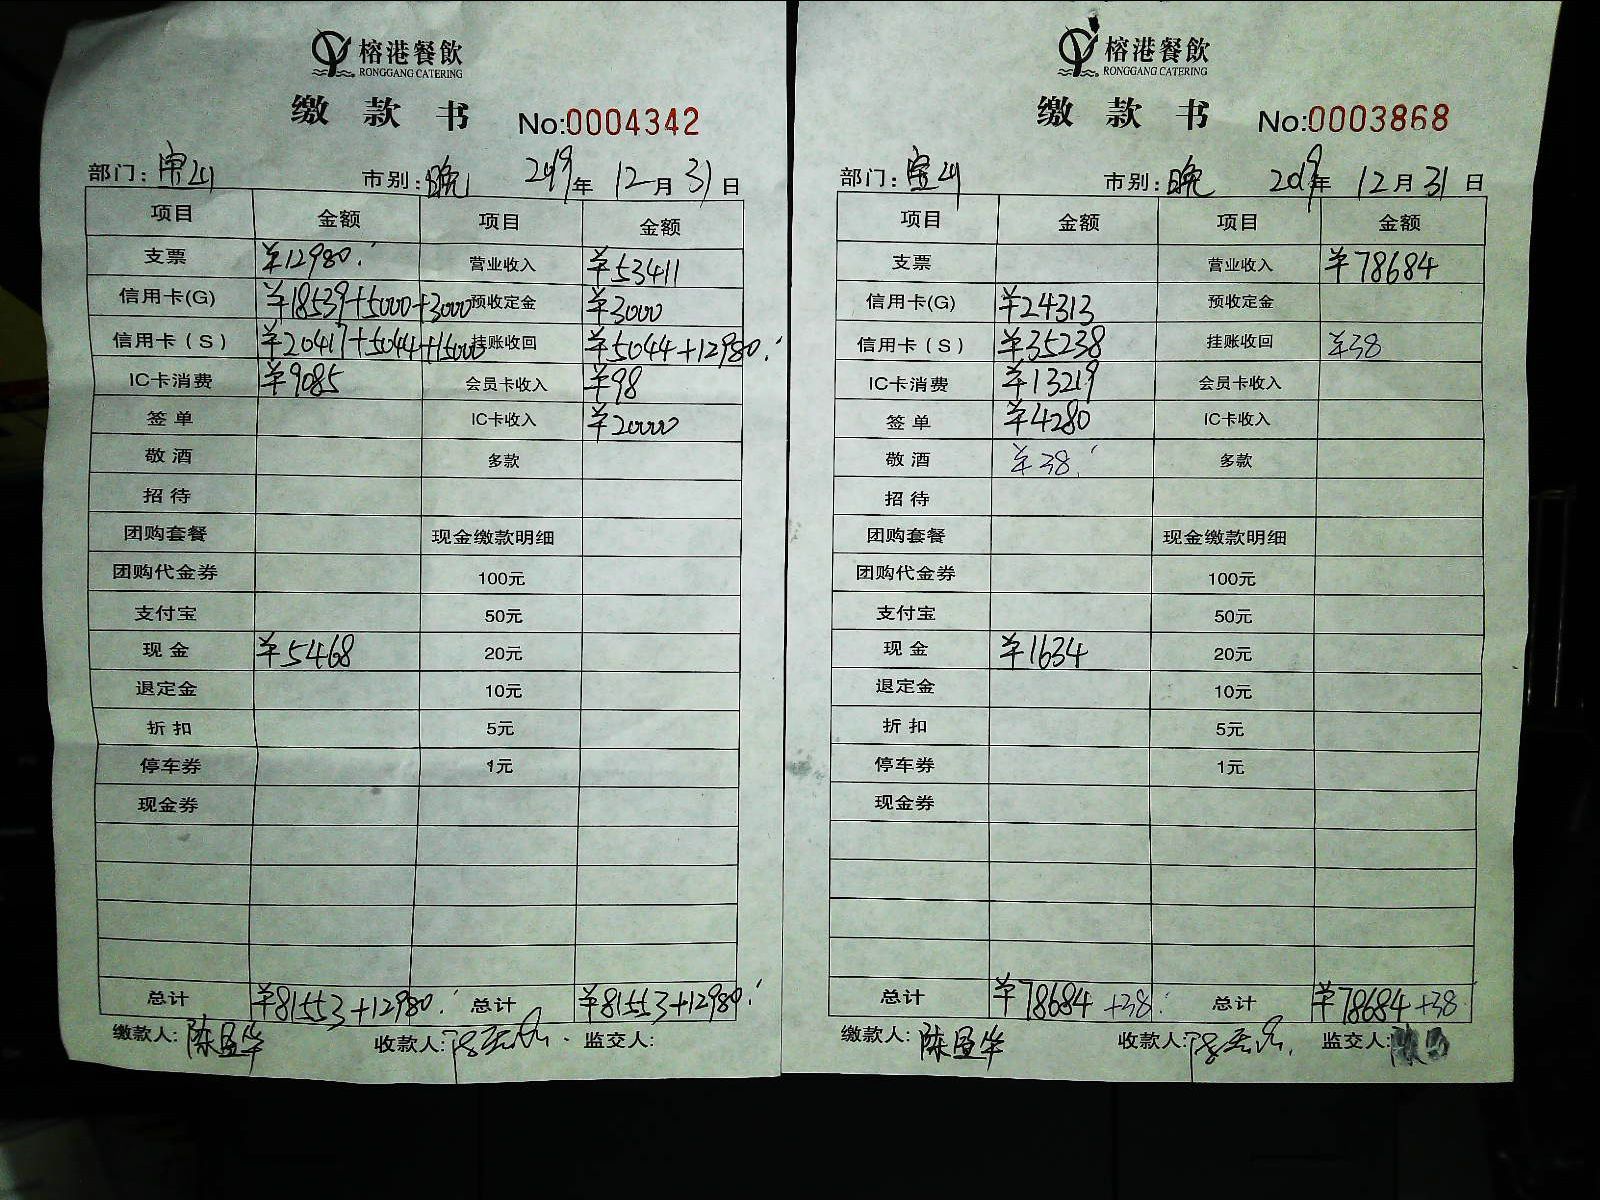 榕港餐飲
RONGGANG CATERING
缴 款 书 No:0004342
部门: 宝山 市别: 晚 2019年 12月31日
项目 金额 项目 金额
支票 ¥12980. 营业收入 ¥53411
信用卡(G) ¥18539+5000+3000 预收定金 ¥3000
信用卡(S) ¥20417+5044+15000 挂账收回 ¥5044+12980.
IC卡消费 ¥9085 会员卡收入 ¥98
签单 IC卡收入 ¥20000
敬酒 多款
招待
团购套餐 现金缴款明细
团购代金券 100元
支付宝 50元
现金 ¥5468 20元
退定金 10元
折扣 5元
停车券 1元
现金券
总计 ¥81553+12980. 总计 ¥81553+12980.
缴款人: 收款人: 监交人:
榕港餐飲
RONGGANG CATERING
缴 款 书 No:0003868
部门: 宝山 市别: 晚 2019年 12月31日
项目 金额 项目 金额
支票 营业收入 ¥78684
信用卡(G) ¥24313 预收定金
信用卡(S) ¥35238 挂账收回 ¥38
IC卡消费 ¥13219 会员卡收入
签单 ¥4280 IC卡收入
敬酒 ¥38. 多款
招待
团购套餐 现金缴款明细
团购代金券 100元
支付宝 50元
现金 ¥1634 20元
退定金 10元
折扣 5元
停车券 1元
现金券
总计 ¥78684+38. 总计 ¥78684+38.
缴款人: 收款人: 监交人: